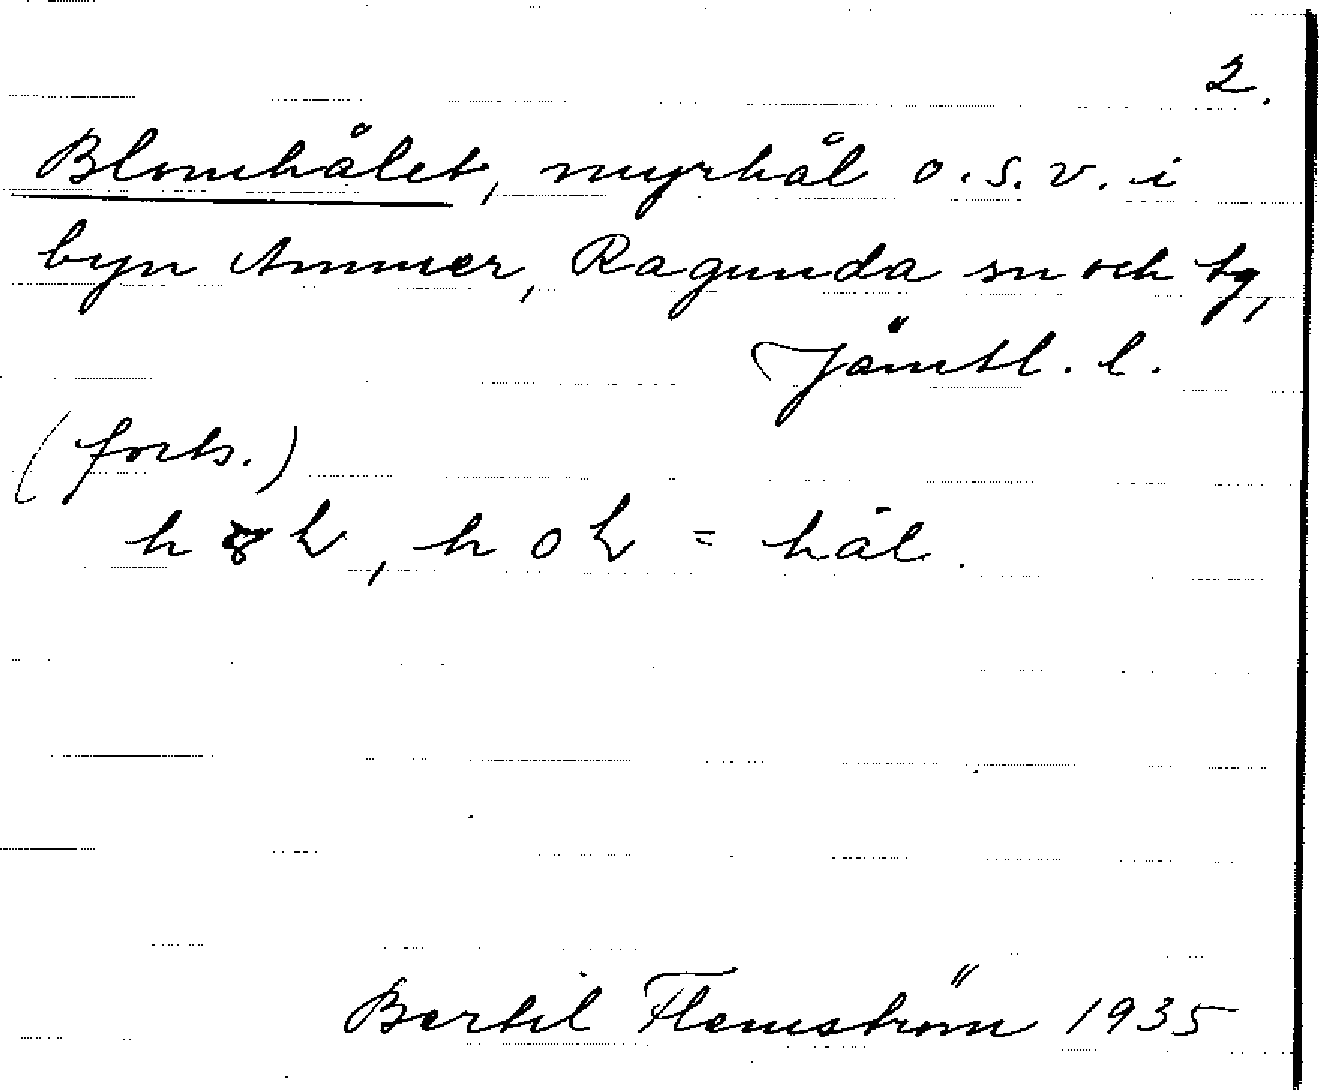 2.
Blomhålet, myrhål o.s.v. i
byn Ammer, Ragunda sn och tg,
Jämtl. l.
(forts.)
h, h = hål.
Bertil Flemström 1935